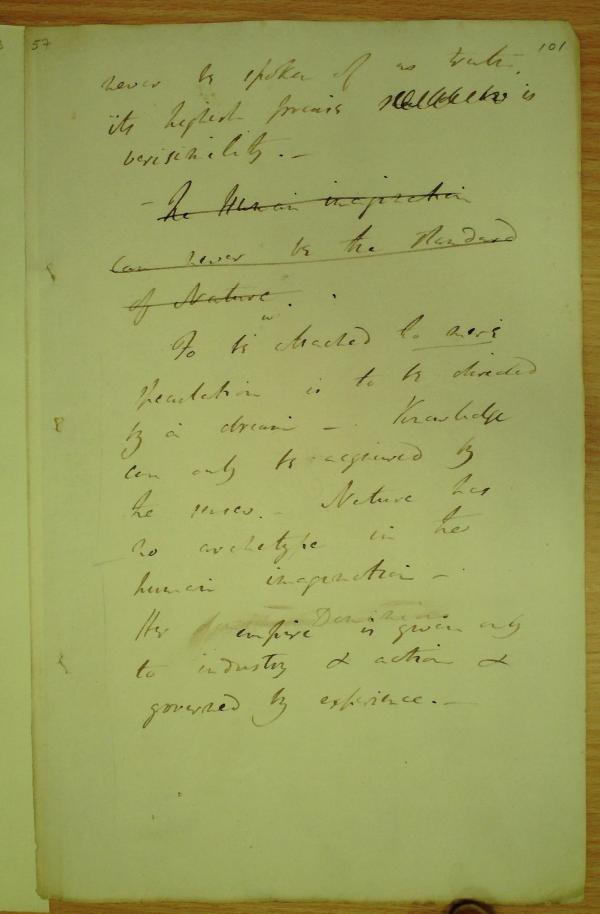 57
101
never be spoken of as truth.
its highest praise is
verisimility. —
– The Human imagination
can never be the standard
of Nature. .
To be attached to mere
speculation is to be directed
by a dream – Knowledge
can only be acquired by
the senses. – Nature has
no archetype in the
human imagination –
Her empire is given only
to industry & action &
governed by experience. —